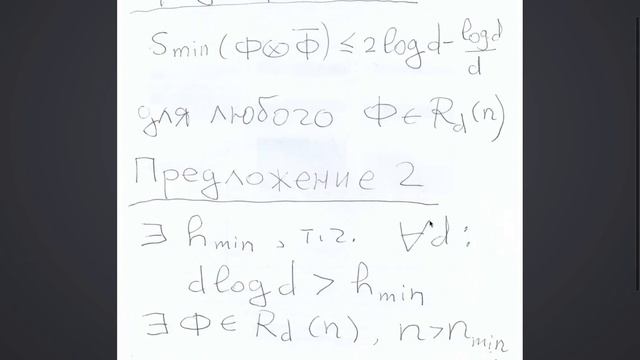 Smin(Φ⊗Φ̅) ≤ 2logd - logd/d
для любого Φ∈Rd(n)
Предложение 2
∃ hmin, т.ч. ∀d:
dlogd > hmin
∃ Φ∈Rd(n), n>nmin